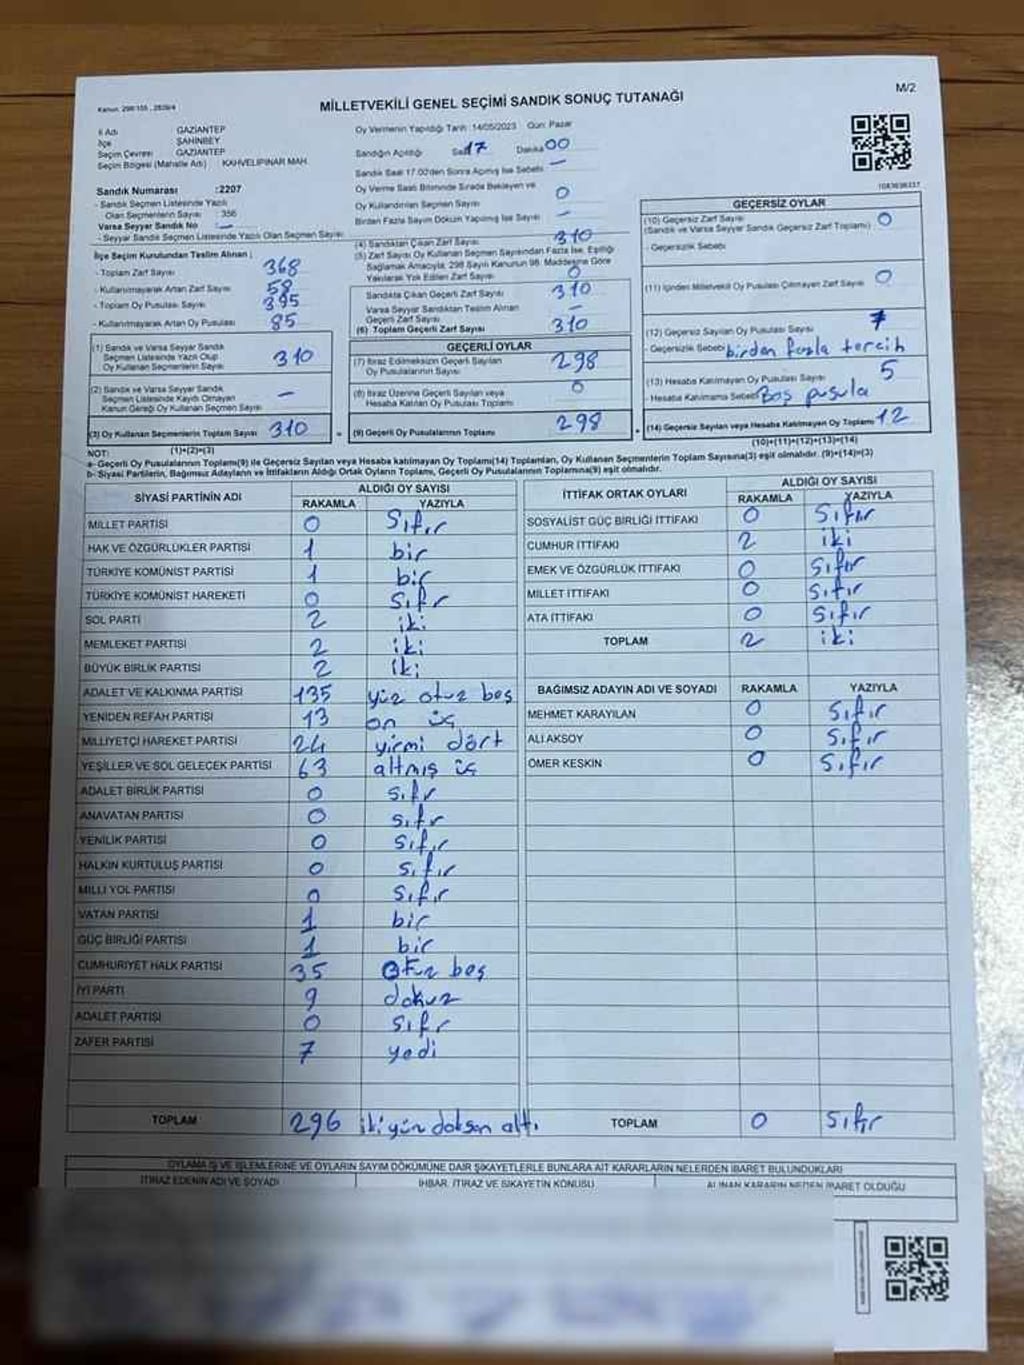 Kanun: 298/105, 2839/4
MİLLETVEKİLİ GENEL SEÇİMİ SANDIK SONUÇ TUTANAĞI
M/2
İl Adı GAZİANTEP
İlçe ŞAHİNBEY
Seçim Çevresi GAZİANTEP
Seçim Bölgesi (Mahalle Adı) : KAHVELİPINAR MAH.
Sandık Numarası :2207
- Sandık Seçmen Listesinde Yazılı
Olan Seçmenlerin Sayısı : 356
Varsa Seyyar Sandık No : —
- Seyyar Sandık Seçmen Listesinde Yazılı Olan Seçmen Sayısı
Oy Vermenin Yapıldığı Tarih: 14/05/2023 Gün: Pazar
Sandığın Açıldığı Saat 17 Dakika 00
Sandık Saat 17.00'den Sonra Açılmış İse Sebebi —
Oy Verme Saati Bitiminde Sırada Bekleyen ve
Oy Kullandırılan Seçmen Sayısı 0
Birden Fazla Sayım Döküm Yapılmış İse Sayısı —
İlçe Seçim Kurulundan Teslim Alınan ;
- Toplam Zarf Sayısı 368
- Kullanılmayarak Artan Zarf Sayısı 58
- Toplam Oy Pusulası Sayısı 395
- Kullanılmayarak Artan Oy Pusulası 85
(1) Sandık ve Varsa Seyyar Sandık
Seçmen Listesinde Yazılı Olup
Oy Kullanan Seçmenlerin Sayısı 310
(2) Sandık ve Varsa Seyyar Sandık
Seçmen Listesinde Kaydı Olmayan
Kanun Gereği Oy Kullanan Seçmen Sayısı —
(3) Oy Kullanan Seçmenlerin Toplam Sayısı 310
(1)+(2)=(3)
(4) Sandıktan Çıkan Zarf Sayısı 310
(5) Zarf Sayısı Oy Kullanan Seçmen Sayısından Fazla İse, Eşitliği
Sağlamak Amacıyla, 298 Sayılı Kanunun 98. Maddesine Göre
Yakılarak Yok Edilen Zarf Sayısı 0
Sandıkta Çıkan Geçerli Zarf Sayısı 310
Varsa Seyyar Sandıktan Teslim Alınan
Geçerli Zarf Sayısı —
(6) Toplam Geçerli Zarf Sayısı 310
GEÇERLİ OYLAR
(7) İtiraz Edilmeksizin Geçerli Sayılan
Oy Pusulalarının Sayısı 298
(8) İtiraz Üzerine Geçerli Sayılan veya
Hesaba Katılan Oy Pusulası Toplamı 0
= (9) Geçerli Oy Pusulalarının Toplamı 298
1083636337
GEÇERSİZ OYLAR
(10) Geçersiz Zarf Sayısı 0
(Sandık ve Varsa Seyyar Sandık Geçersiz Zarf Toplamı)
- Geçersizlik Sebebi
(11) İçinden Milletvekili Oy Pusulası Çıkmayan Zarf Sayısı 0
(12) Geçersiz Sayılan Oy Pusulası Sayısı 7
- Geçersizlik Sebebi birden fazla tercih
(13) Hesaba Katılmayan Oy Pusulası Sayısı 5
- Hesaba Katılmama Sebebi Boş pusula
+ (14) Geçersiz Sayılan veya Hesaba Katılmayan Oy Toplamı 12
(10)+(11)+(12)+(13)=(14)
NOT:
a- Geçerli Oy Pusulalarının Toplamı(9) ile Geçersiz Sayılan veya Hesaba katılmayan Oy Toplamı(14) Toplamları, Oy Kullanan Seçmenlerin Toplam Sayısına(3) eşit olmalıdır. (9)+(14)=(3)
b- Siyasi Partilerin, Bağımsız Adayların ve İttifakların Aldığı Ortak Oyların Toplamı, Geçerli Oy Pusulalarının Toplamına(9) eşit olmalıdır.
SİYASİ PARTİNİN ADI ALDIĞI OY SAYISI
RAKAMLA YAZIYLA
MİLLET PARTİSİ 0 Sıfır
HAK VE ÖZGÜRLÜKLER PARTİSİ 1 bir
TÜRKİYE KOMÜNİST PARTİSİ 1 bir
TÜRKİYE KOMÜNİST HAREKETİ 0 sıfır
SOL PARTİ 2 iki
MEMLEKET PARTİSİ 2 iki
BÜYÜK BİRLİK PARTİSİ 2 iki
ADALET VE KALKINMA PARTİSİ 135 yüz otuz beş
YENİDEN REFAH PARTİSİ 13 on üç
MİLLİYETÇİ HAREKET PARTİSİ 24 yirmi dört
YEŞİLLER VE SOL GELECEK PARTİSİ 63 altmış üç
ADALET BİRLİK PARTİSİ 0 sıfır
ANAVATAN PARTİSİ 0 sıfır
YENİLİK PARTİSİ 0 sıfır
HALKIN KURTULUŞ PARTİSİ 0 sıfır
MİLLİ YOL PARTİSİ 0 sıfır
VATAN PARTİSİ 1 bir
GÜÇ BİRLİĞİ PARTİSİ 1 bir
CUMHURİYET HALK PARTİSİ 35 otuz beş
İYİ PARTİ 9 dokuz
ADALET PARTİSİ 0 sıfır
ZAFER PARTİSİ 7 yedi
TOPLAM 296 iki yüz doksan altı
İTTİFAK ORTAK OYLARI ALDIĞI OY SAYISI
RAKAMLA YAZIYLA
SOSYALİST GÜÇ BİRLİĞİ İTTİFAKI 0 sıfır
CUMHUR İTTİFAKI 2 iki
EMEK VE ÖZGÜRLÜK İTTİFAKI 0 sıfır
MİLLET İTTİFAKI 0 sıfır
ATA İTTİFAKI 0 sıfır
TOPLAM 2 iki
BAĞIMSIZ ADAYIN ADI VE SOYADI RAKAMLA YAZIYLA
MEHMET KARAYILAN 0 sıfır
ALİ AKSOY 0 sıfır
ÖMER KESKİN 0 sıfır
TOPLAM 0 sıfır
OYLAMA İŞ VE İŞLEMLERİNE VE OYLARIN SAYIM DÖKÜMÜNE DAİR ŞİKAYETLERLE BUNLARA AİT KARARLARIN NELERDEN İBARET BULUNDUKLARI
İTİRAZ EDENİN ADI VE SOYADI İHBAR, İTİRAZ VE ŞİKAYETİN KONUSU ALINAN KARARIN NEDEN İBARET OLDUĞU